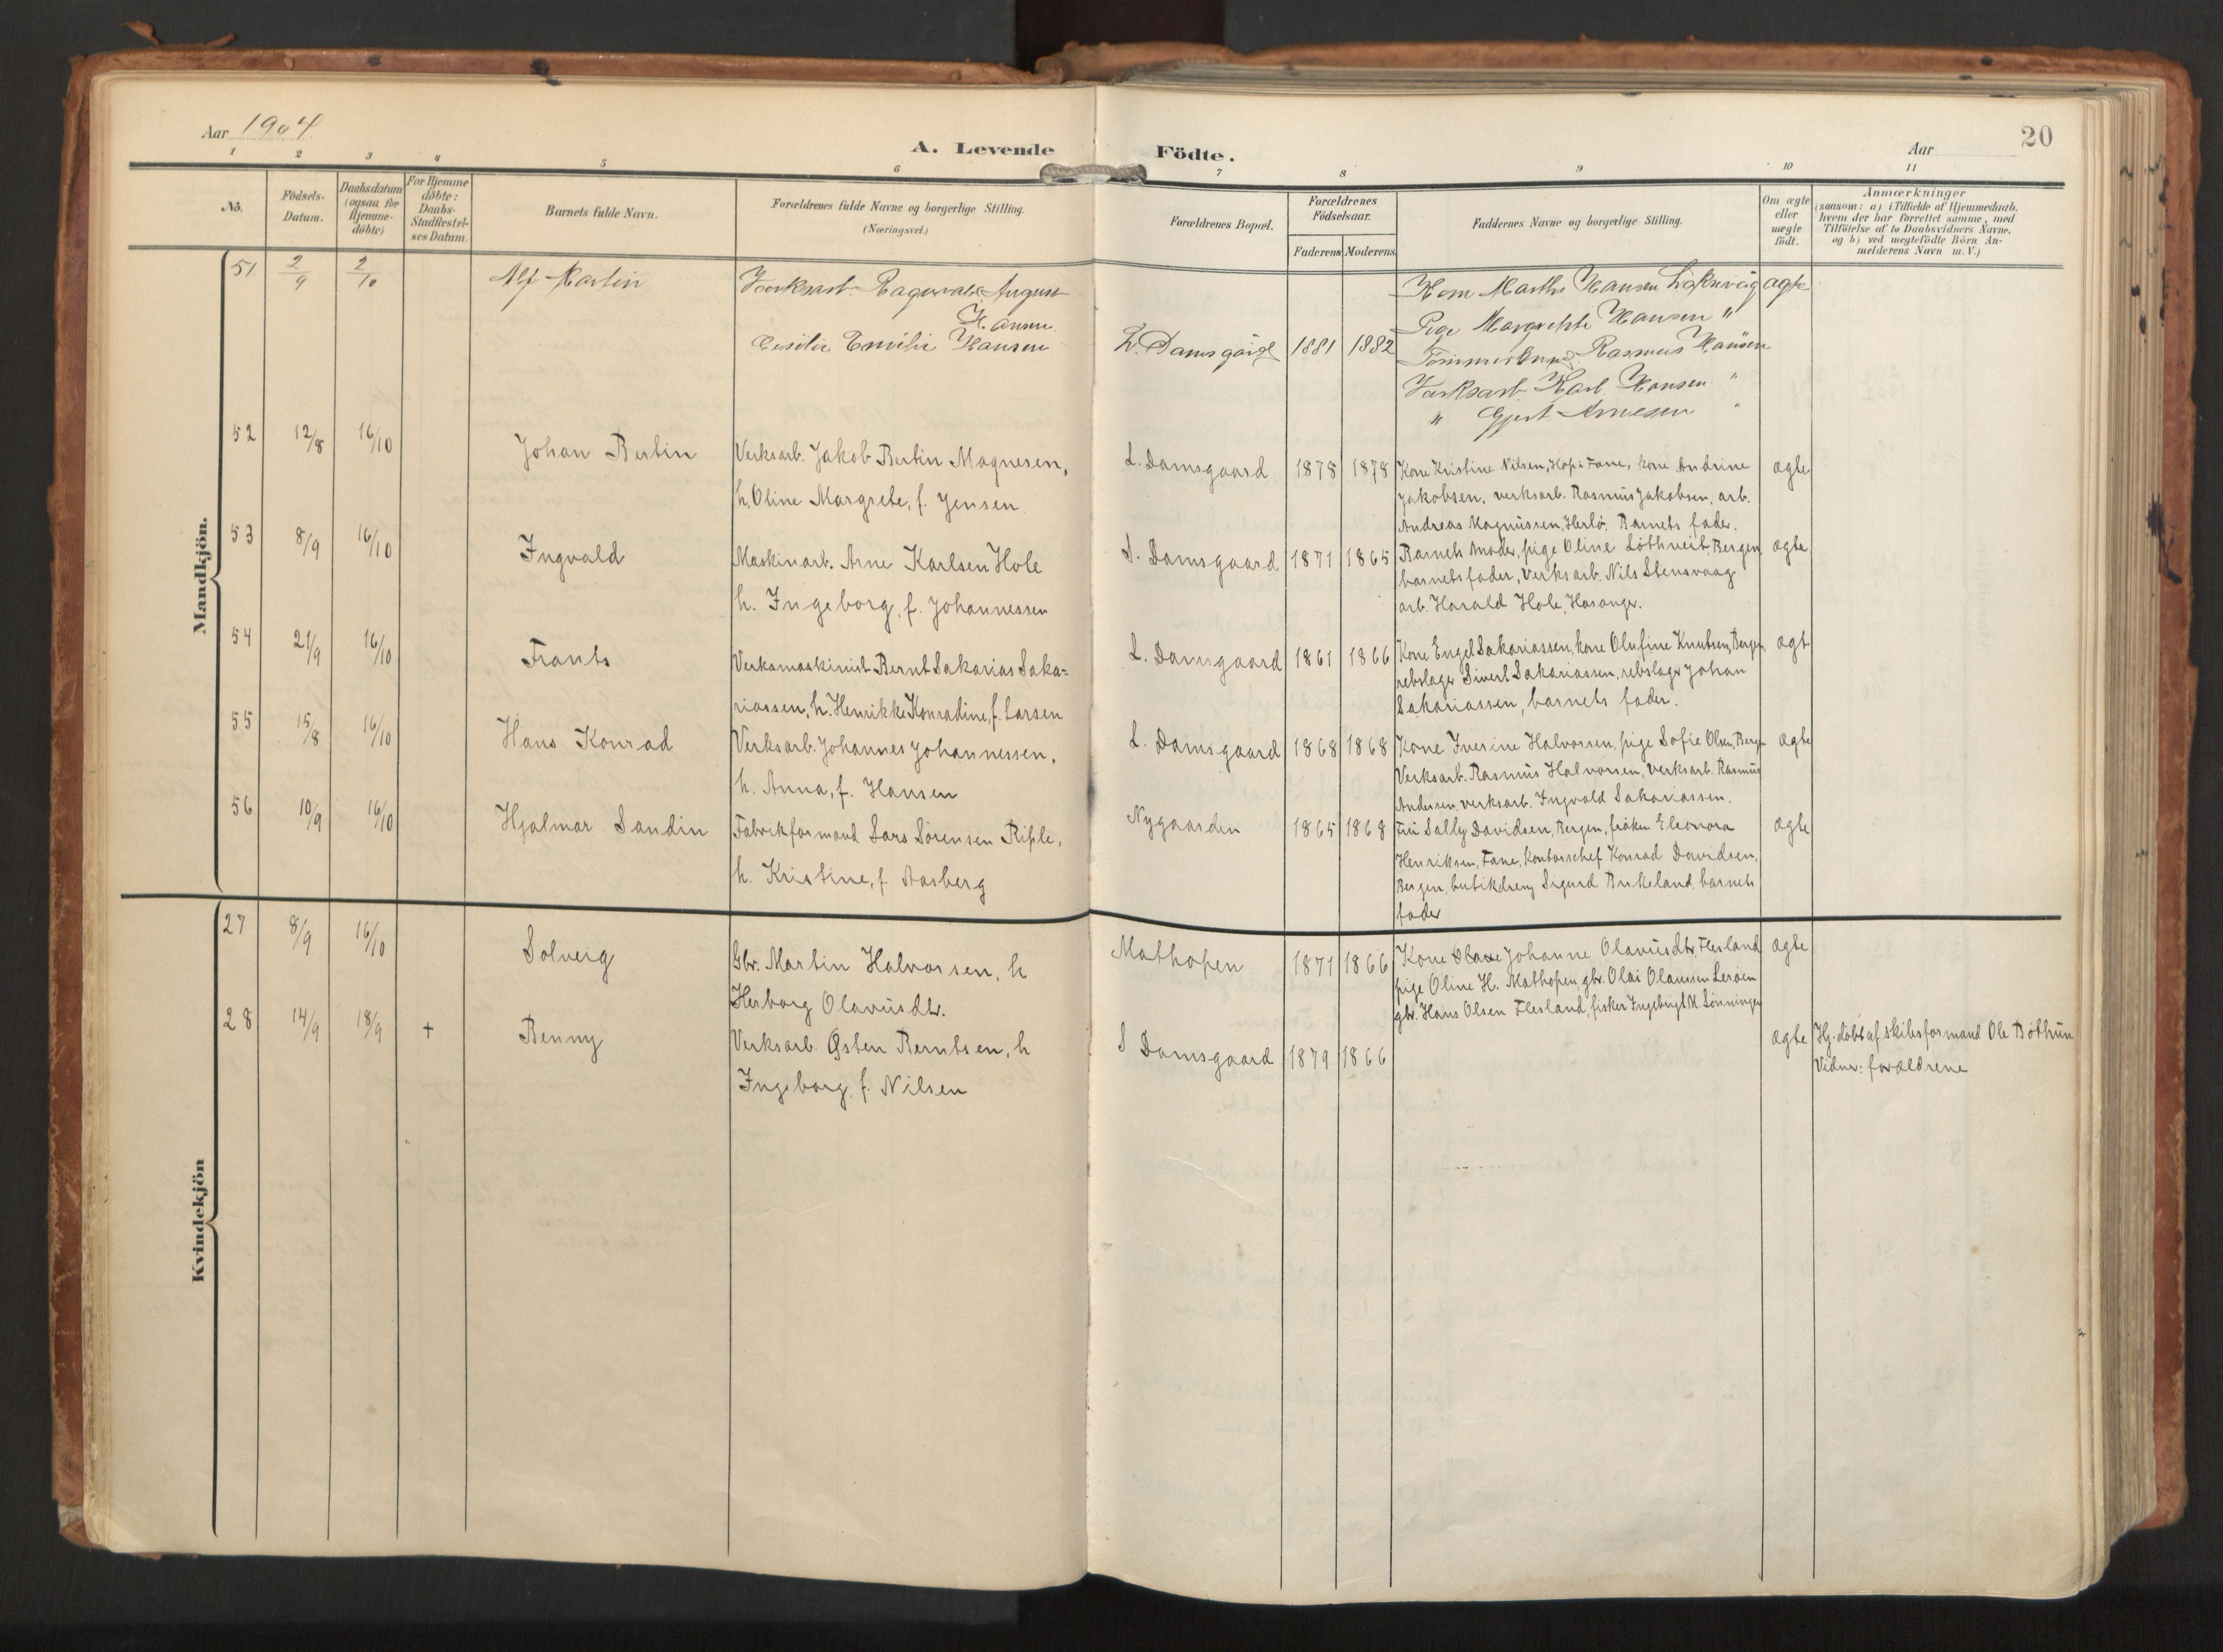 Aar 1904
A. Levende Födte.
Aar
20
1 2 3 4 5 6 7 8 9 10 11
No.
Födsels-Datum.
Daabsdatum (ogsaa for Hjemme-döbte)
For Hjemme döbte: Daabs-Stadfæstel-ses Datum.
Barnets fulde Navn.
Forældrenes fulde Navne og borgerlige Stilling. (Næringsvei.)
Forældrenes Bopæl.
Forældrenes Födselsaar.
Faderens Moderens
Faddernes Navne og borgerlige Stilling.
Om ægte eller uægte födt.
Anmærkninger
(saasom: a) i Tilfælde af Hjemmedaab,
hvem der har forrettet samme, med
Tilföielse af to Daabsvidners Navne,
og b) ved uægtefödte Börn An-
melderens Navn m.V.)
Mandkjön.
51 2/9 2/10 Alf Martin
August
Hansen
Emilie Hansen
L. Damsgård 1881 1882
Marthe Hansen
Pige Hansen "
Rasmus Hansen
Karl Hansen "
" Arnesen "
ægte
52 12/8 16/10 Johan Bertin
Verksarb. Jakob Bertin Magnesen,
h. Oline Margrete, f. Jensen.
L. Damsgaard 1878 1878
Kone Kristine Nilsen, Hop i Fane, kone Andrine
Jakobsen, verksarb. Rasmus Jakobsen, arb.
Andreas Magnussen, Herlö, Barnets fader.
ægte
53 8/9 16/10 Ingvald
Maskinarb. Arne Karlsen Hole
h. Ingeborg, f. Johannessen
L. Damsgaard 1871 1865
Barnets Moder, pige Oline Löthveit, Bergen
barnets fader, verksarb. Nils Stensvaag
arb. Harald Hole, Hosanger.
ægte
54 21/9 16/10 Frants
Verksmaskinist Bernt Sakarias Saka=
riassen, h. Henrikke Konradine, f. Larsen
L. Damsgaard 1861 1866
Kone Engel Sakariassen, kone Olufine Knutsen, Bergen
rebslager Sivert Sakariassen, rebslager Johan
Sakariassen, barnets fader.
ægt
55 15/8 16/10 Hans Konrad
Verksarb. Johannes Johannessen,
h. Anna, f. Hansen
L. Damsgaard 1868 1868
Kone Ivesine Halvorsen, pige Sofie Olsen, Bergen
Verksarb. Rasmus Halvorsen, verksarb. Rasmus
Andersen, verksarb. Ingvald Sakariassen.
ægte
56 10/9 16/10 Hjalmar Sandin
Fabrikformand Lars Sörensen Riple,
h. Kristine, f. Aasberg
Nygaarden 1865 1868
Fru Sally Davidsen, Bergen, fröken Eleonora
Henriksen, Fane, kontorschef Konrad Davidsen,
Bergen, butikdreng Sigurd Birkeland, barnets
fader
ægte
Kvindekjön
27 8/9 16/10 Solveig
Gbr. Martin Halvorsen, h
Herborg Olavusdtr.
Mathopen 1871 1866
Kone Johanne Olavusdtr. Flesland
pige Oline H. Mathopen, gbr. Olai Olaussen Leröen
gbr. Hans Olsen Flesland, fisker Ingebrigt M. Lönningen
ægte
28 14/9 18/9 + Benny
Verksarb. Østen Berntsen, h
Ingeborg, f. Nilsen
L Damsgaard 1879 1866
ægte
Hj. döbt af skibsformand Ole Böthun
Vidner: forældrene